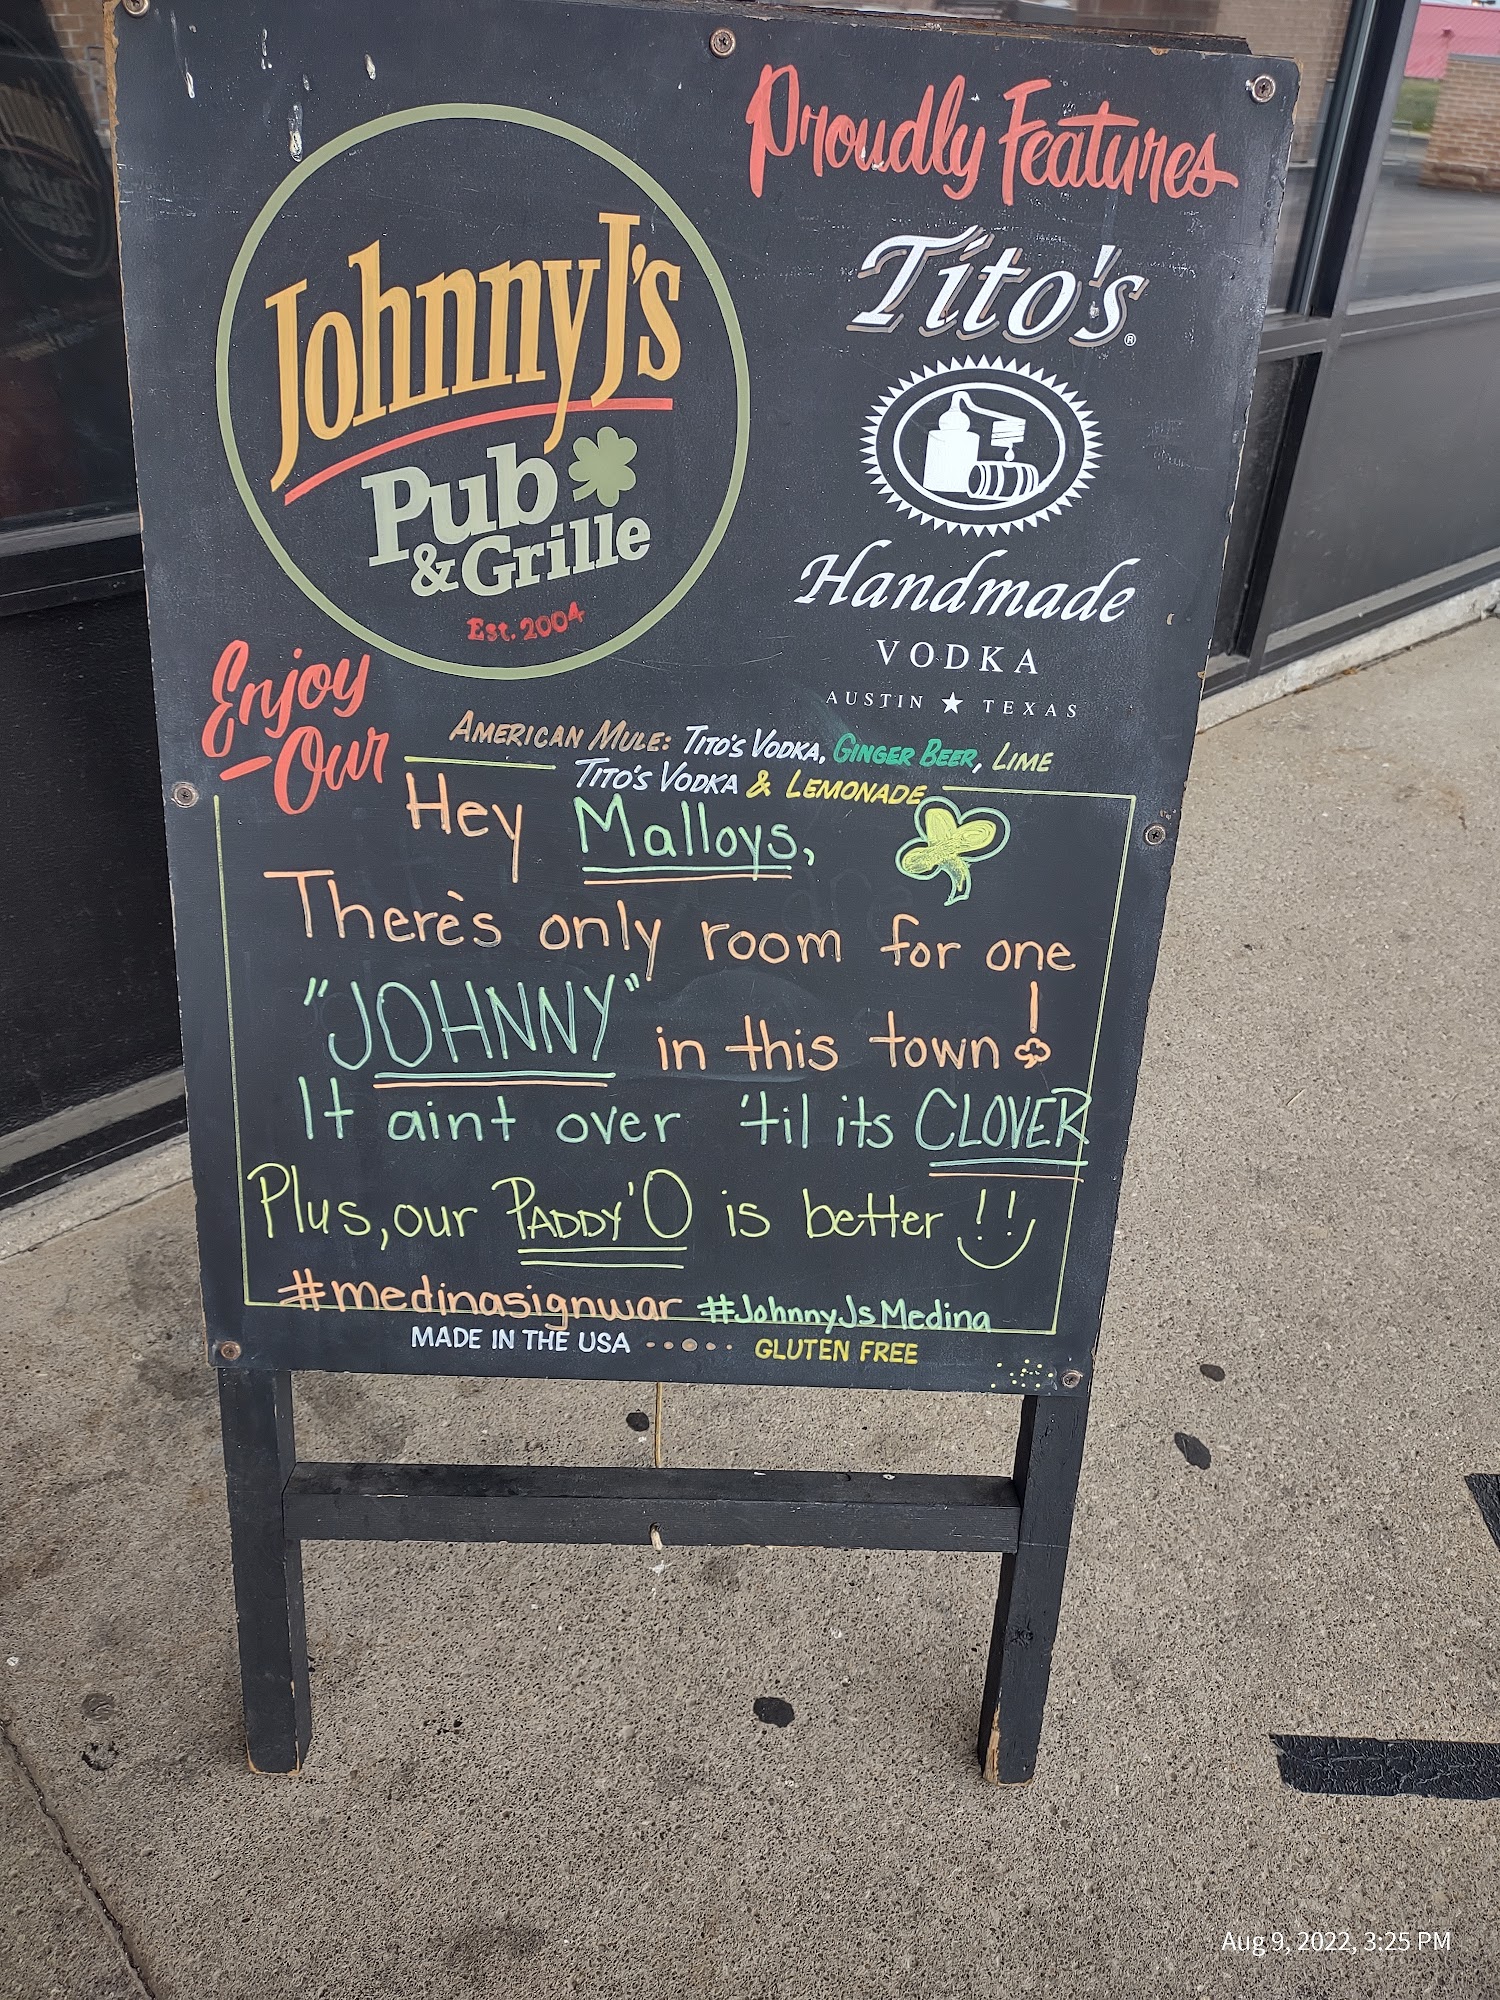 Johnny J's
Pub
& Grille
Est. 2004
Proudly Features
Tito's®
Handmade
VODKA
AUSTIN ★ TEXAS
Enjoy
Our
AMERICAN MULE: TITO'S VODKA, GINGER BEER, LIME
TITO'S VODKA & LEMONADE
Hey Malloys,
There's only room for one
"JOHNNY" in this town!
It aint over 'til its CLOVER
Plus, our PADDY'O is better !!
#medinasignwar #JohnnyJsMedina
MADE IN THE USA GLUTEN FREE
Aug 9, 2022, 3:25 PM